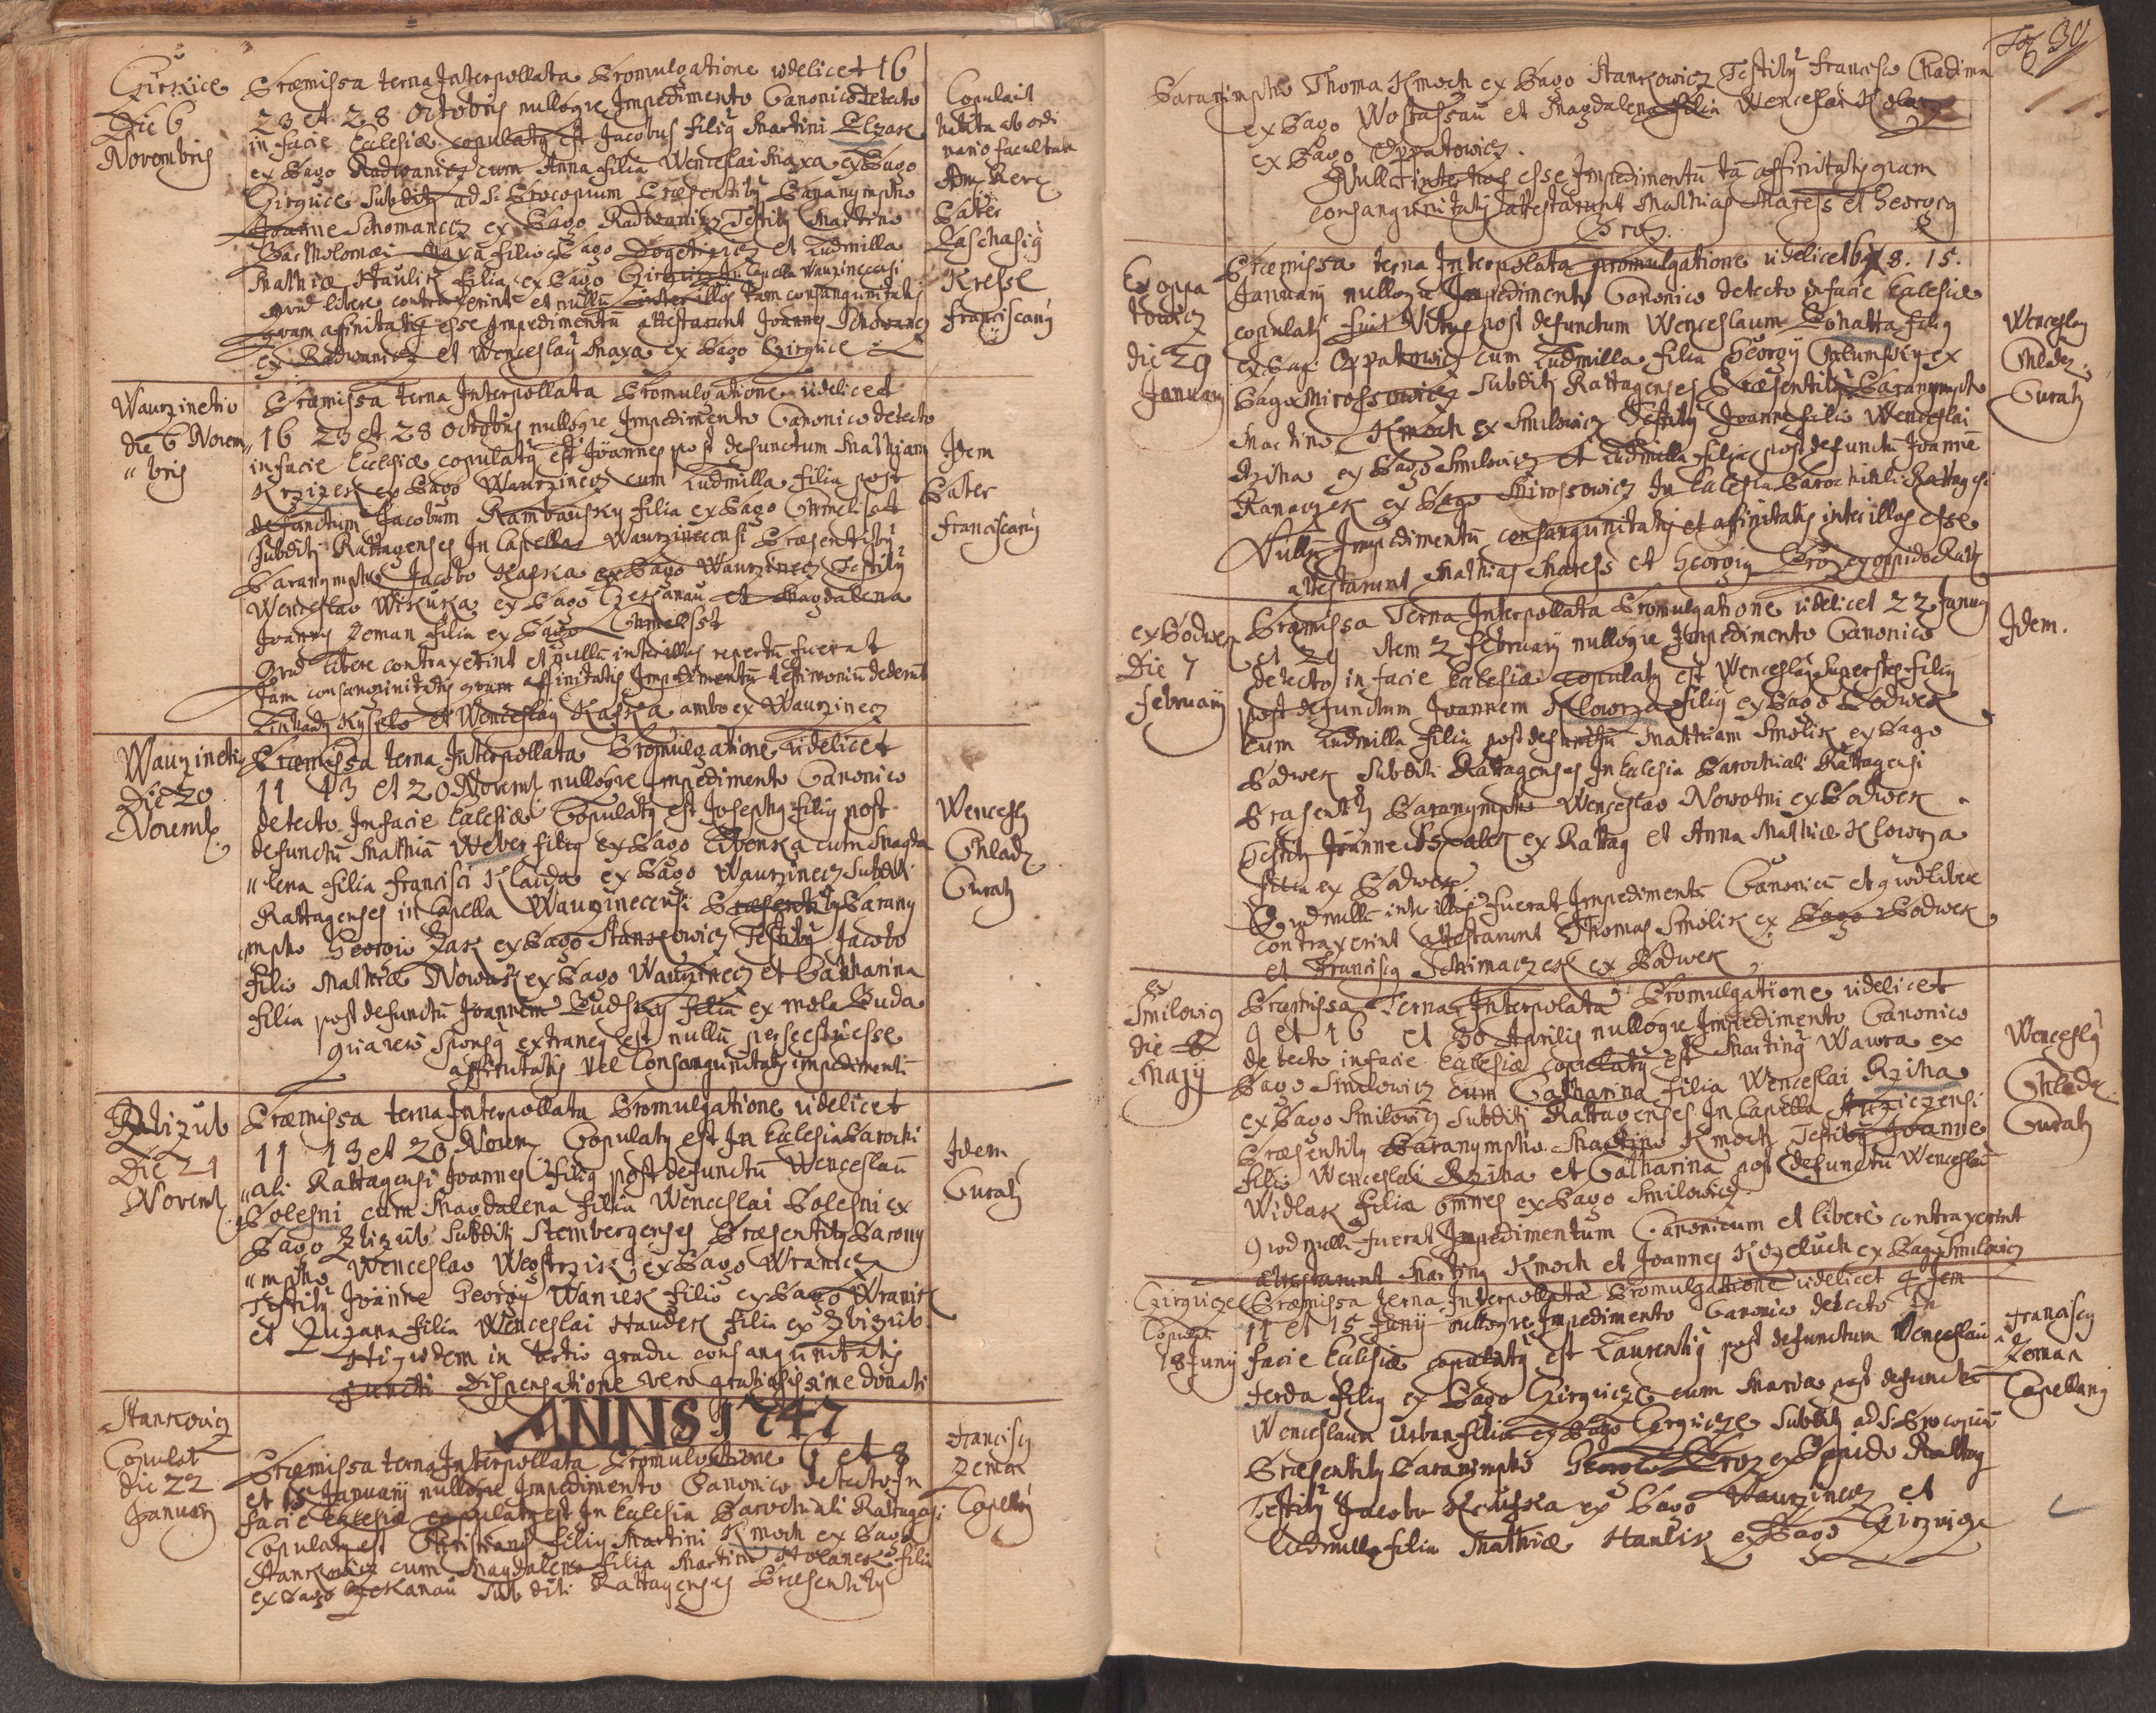 Girziice
Die 6
Novembris
Præmissa terna Interpollata Promulgatione videlicet 16
23 et 28 Octobris nullóqve Impedimento Canonico detecto
in facie Ecclesiæ copulatq est Jacobus filiq Martini Elzase
ex Pago Radwanicz cum Anna filia Wenceslai Maxa ex Pago
Girguce Subditi ad S. Procopium Præsentibq Paranympho
Joanne Schomancz ex Pago Radwanicz Testibq Martino
Bartholomæi Maxa filio ex Pago et Ludmilla
Mathiæ Haulik filia ex Pago In Capella Waurzinecensi
qvod libere contraxerint et nullū inter illos tam consangvinitatis
qvam affinitatis esse Impedimentū attestarunt Joannes Schowancz
ex Radwanicz et Wenceslaq Maxa ex Pago Girguce
Copulavit
ab ordi
nario facultate
Adm Rev
Pater
Paschasiq
Kresl
Franciscanq
Waurzinecio
die 6 Novem
" bris
Præmissa terna Interpollata Promulgatione videlicet
16 23 et 28 Octobris nullóqve Impedimento Canonico detecto
in facie Ecclesiæ copulatq est Joannes post defunctum Mathiam
Krzizek ex Pago Waurzinecz cum Ludmilla filia post
defunctum Jacobum Rambausky filia ex Pago Chmelisst
Subditi Rattagenses In Capella Waurzinecensi Præsentibq
Paranympho Jacobo Kaska ex Pago Waurzinecz Testibq
Wenceslao Wikuka ex Pago Czekanau et Magdalena
Joannis Zeman filia ex Pago Chmelisst
Qvod libere contraxerint et nullū inter illos repertū fuerat
tam consangvinitatis qvam affinitatis Impedimentū testimoniū dederūt
Linhardq Kysela et Wenceslaq Kaska ambo ex Waurzinecz
Idem
Pater
Franciscanq
Waurzinetii
Die 20
Novemb.
Præmissa terna Interpollata Promulgatione videlicet
11 13 et 20 Novemb nullóqve Impedimento Canonico
detecto In facie Ecclesiæ Copulatq est Josephq filiq post
defunctū Mathiā Weber filiq ex Pago Libenska cum Magda
"lena filia Francisci Klauda ex Pago Waurzinecz Subditi
Rattagenses in Capella Waurzinecensi Præsentibq Parany
"mpho Georgio Zak ex Pago Stankowicz Testibq Jacobo
filio Mathiæ Nowak ex Pago Waurzinecz et Catharina
filia post defunctū Joannem Budsky filia ex mola Buda
qvia vero Sponsq extraneq est nullū esse
affinitatis vel Consangvinitatis impedimentū
Wenceslq
Chladz
Curatq
Zbizub
Die 21
Novemb
Præmissa terna Interpollata Promulgatione videlicet
11 13 et 20 Novem Copulatq est In Ecclesia Parochi
"ali Rattagensi Joannes filiq post defunctū Wenceslaū
Bolesni cum Magdalena filia Wenceslai Bolesni ex
Pago Zbizub Subditi Stembergenses Præsentibq Parany
"mpho Wenceslao Westrzik ex Pago Wranicz
Testibq Joanne Georgii Waniek filio ex Pago Wranik
et Zuzana filia Wenceslai Haudek filia ex Zbizub
Hi qvidem in tertio gradu consangvinitatis
juncti Dispensatione vero gratiosissime donati
Idem
Curatq
ANNO 1747
Stankowicz
Copulat
die 22
Januarij
Præmissa terna Interpollata Promulgatione 6 et 8
et 15 Januarij nullóqve Impedimento Canonico detecto In
facie Ecclesiæ copulatq est In Ecclesia Parochiali Rattagesi
Copulatq est Christianq filiq Martini Kmoch ex Pago
Stankowicz cum Magdalena filia Martini Holanek filia
ex Pago Czekanau Subditi Rattagenses Præsentibq
Franciscq
Zeman
Capellq
Fo 30
Paranimpho Thoma Kmoch ex Pago Stankowicz Testibq Francisco Chadima
ex Pago Wostassau et Magdalena filia Wenceslai Kolarz
ex Pago Oppatowicz.
Nullū inter hos esse Impedimentū tā affinitatis qvam
Consangvinitatis attestarunt Mathias Maress et Georgq
Broz.
Ex Oppa
towicz
die 29
Januarij
Præmissa terna Interpolata promulgatione videlicet 6 8. 15.
Januarij nulloqve Impedimento Canonico detecto in facie Ecclesiæ
copulatq fuit Vitus post defunctum Wenceslaum Bohatta filiq
ex Pago Oppatowicz cum Ludmilla filia Georgij Chlumsky ex
Pago Mirossowicz Subditi Rattagenses Præsentibq Paranympho
Martino Kmoch ex Smilowicz Testibq Joanne filio Wenceslai
Rziha ex Pago Smilowicz et Ludmilla filia post defunctū Joannē
Kanaczek ex Pago Mirossowicz In Ecclesia Parochiali Rattagesi
Nullū Impedimentū consangvinitatis et affinitatis inter illos esse
attestarunt Mathias Maress et Georgiq Broz ex oppido Rattq
Wenceslq
Chladz
Curatq
ex Podwek
Die 7
Februarij
Præmissa Terna Interpollata Promulgatione videlicet 22 Januarij
et 29 item 2 Februarij nullóqve Impedimento Canonico
detecto in facie Ecclesiæ copulatq est Wenceslaq Superstes filiq
post defunctum Joannem Klowrza filiq ex Pago Podwek
cum Ludmilla filia post defunctū Matthiam Smolik ex Pago
Podwek Subditi Rattagenses In Ecclesia Parochiali Rattagensi
Præsentibq Paranympho Wenceslao Nowotni ex Podwek
Testibq Joanne ex Rattag et Anna Mathiæ Klowrza
filia ex Podwek.
Qvod nullū inter illos fuerat Impedimentū Canonicū et qvod libere
Contraxerint attestarunt Thomas Smolik ex Pago Podwek
et Franciscq Schimaczek ex Podwek
Idem.
ex
Smilowicz
die 6
Maji
Præmissa Terna Interpolata Promulgatione videlicet
9 et 16 et 30 Aprilis nullóqve Impedimento Canonico
detecto in facie Ecclesiæ copulatq est Martinq Wawra ex
Pago Smilowicz cum Catharina filia Wenceslai Rziha
ex Pago Smilowicz Subditi Rattagenses In Capella
Præsentibq Paranympho Martino Kmoch Testibq Joanne
filio Wenceslai Rziha et Catharina post defunctū Wenceslaū
Widlak filia omnes ex Pago Smilowicz.
qvod nullū fuerat Impedimentum Canonicum et liberè contraxerint
attestarunt Martinq Kmoch et Joannes Kozeluch ex Pago Smilowicz
Wenceslq
Chladz
Curatq
Girguicze
Copulati
18 Junij
Præmissa terna Interpollata Promulgatione videlicet 4 Item
11 et 15 Junij nullóqve Impedimento Canonico detecto In
facie Ecclesiæ copulatq est Laurentiq post defunctum Wenceslaū
Ferda filiq ex Pago Girguicze cum Maria post defunctū
Wenceslaum Urban filia ex Pago Girguicze Subditi ad S. Procopiū
Præsentibq Paranimpho Georgio Broz ex Oppido Rattag
Testibq Jacobo Krauska ex Pago Waurzinecz et
Ludmilla filia Mathiæ Haulik ex Pago Girzvicze
Franciscq
Zeman
Capellanq